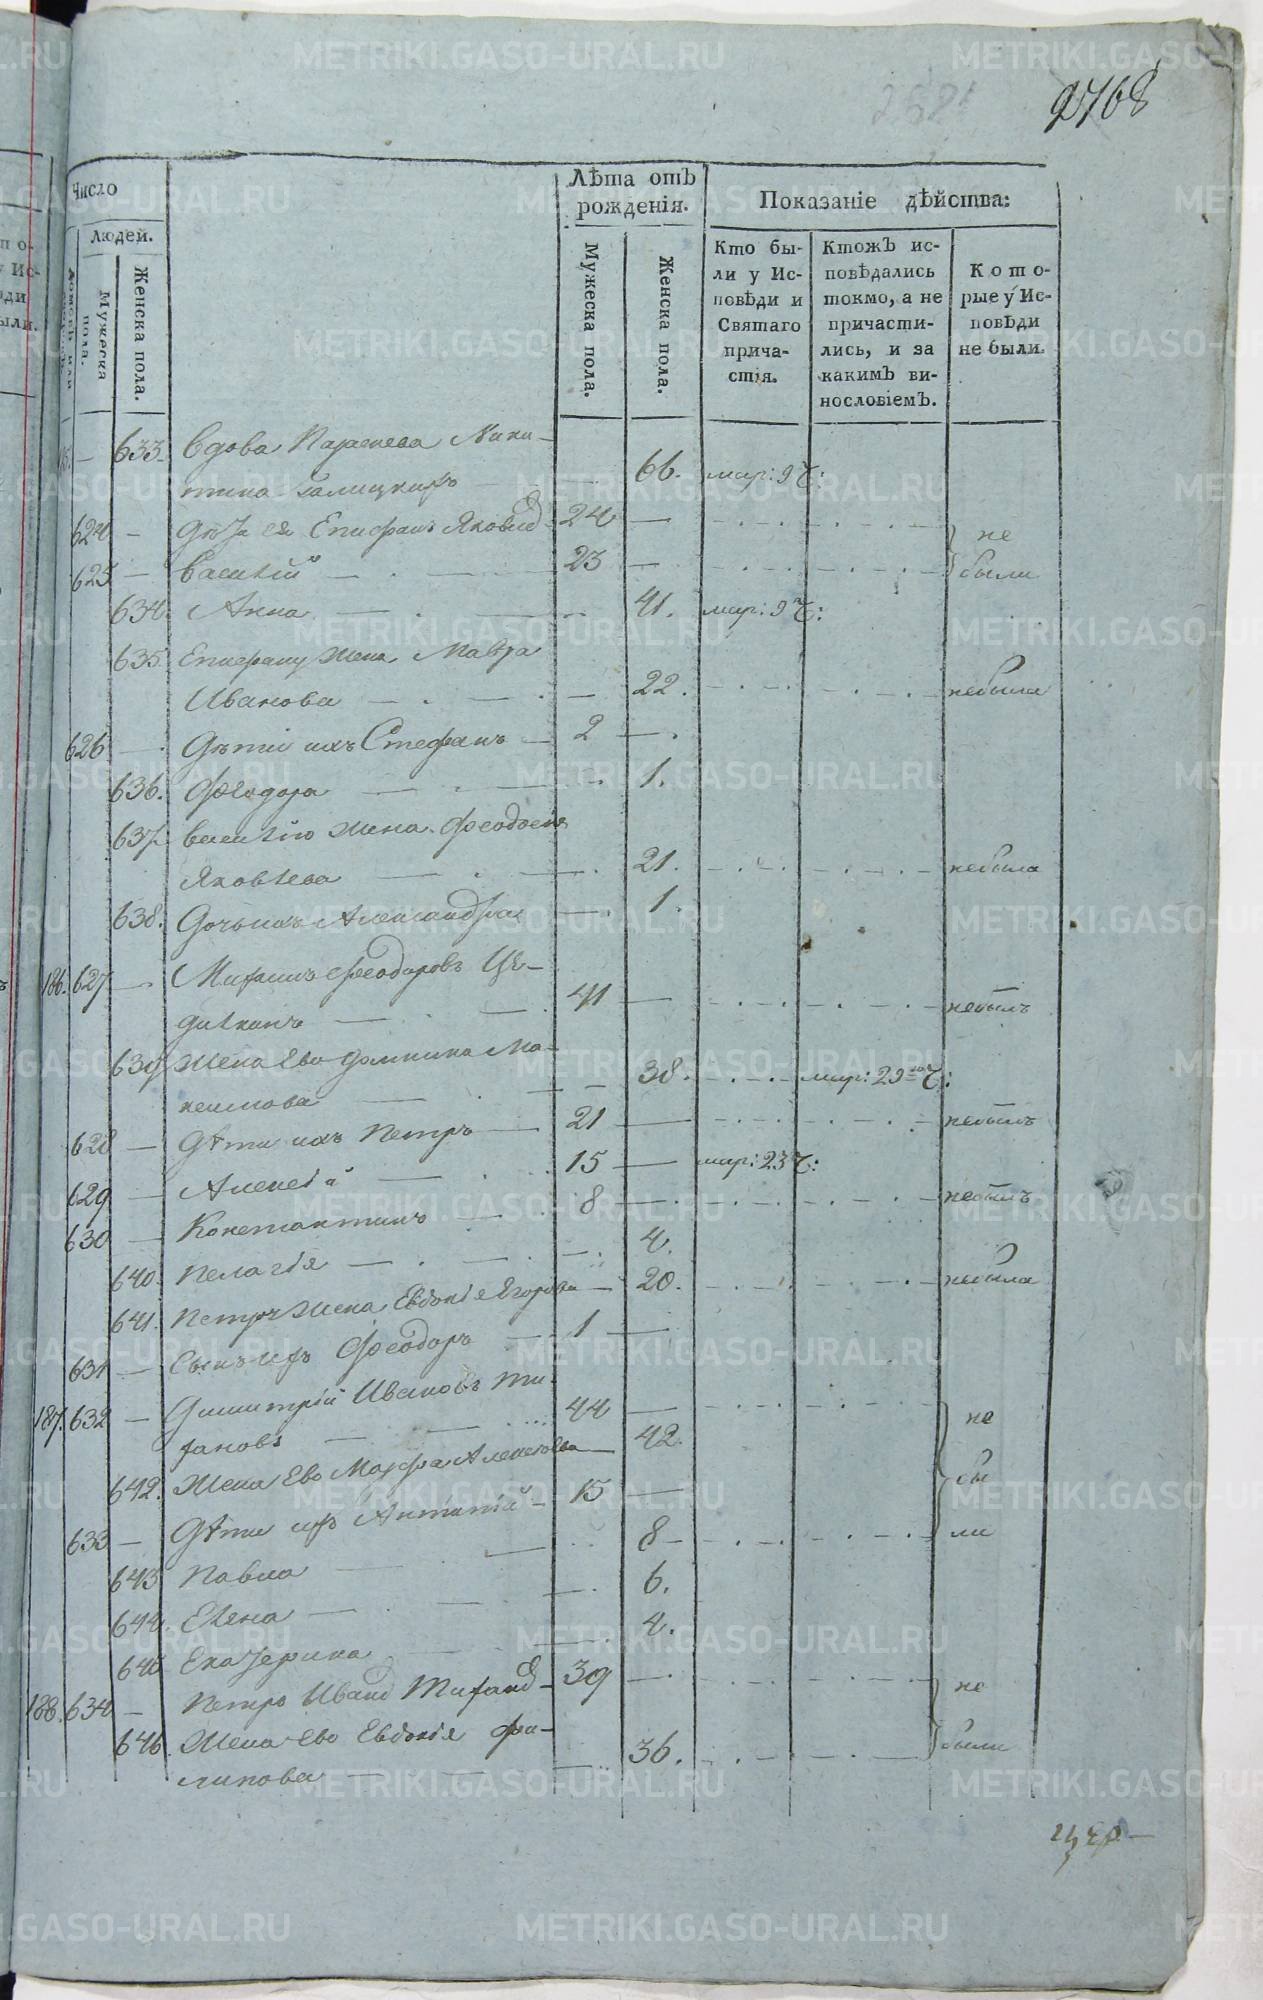 2768
Число
людей.
Мужеска пола.
Женска пола.
Лѣта отъ рожденія.
Мужеска пола.
Женска пола.
Показаніе дѣйства:
Кто бы-
ли у Ис-
повѣди и
Святаго
прича-
стія.
Ктожъ ис-
повѣдались
токмо, а не
причасти-
лись, и за
какимъ ви-
нословіемъ.
Кото-
рые у Ис-
повѣди
не были.
633. Вдова Парасковья Ники-
тина Галицкихъ 66. мар: 9 ч:
624 Дѣти ея Епифанъ Яковлев 24 не
625 Василій 23 были
634. Анна 41. мар: 9 ч:
635. Епифану жена Мавра
Иванова 22. небыла
626 Дѣти ихъ Стефанъ 2
636. Феодора 1.
637. Василію жена Феодосія
Яковлева 21. небыла
638. Дочь ихъ Александра 1.
186. 627
Феодоровъ Це-
дилкинъ 41 небылъ
639 Жена Ево Домника Ма-
ксимова 38. мар: 29 ч:
628 Дѣти ихъ Петръ 21 небылъ
629 Алексѣй 15 мар: 23 ч:
630 Константинъ 8 небылъ
640. Пелагія 4.
641. Петру жена Евдокія Егорова 20. небыла
631 Сынъ ихъ Феодоръ 1
187. 632 Димитрій Ивановъ Ти-
хановъ 44 не
642. Жена Ево Марфа Алексѣева 42. бы
633 Дѣти ихъ 15 ли
643 Павла 8
644. Елена 6.
645 Екатерина 4.
188. 634 Петръ Иванов Тиханов 39 не
646. Жена ево Евдокія Фи-
липова 36. были